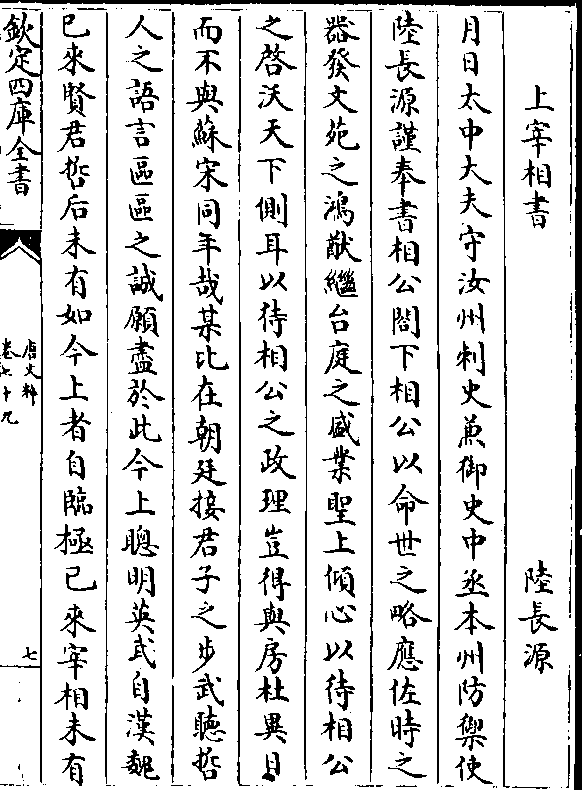 上宰相書　陸長源
月日太中大夫守汝州刺史兼御史中丞本州防禦使
陸長源謹奉書相公閤下相公以命世之略應佐時之
器發文苑之鴻猷繼台庭之盛業聖上傾心以待相公
之啓沃天下側耳以待相公之政理豈得與房杜異日
而不與蘇宋同年哉某比在朝廷接君子之步武聽哲
人之語言區區之誠願盡於此今上聰明英武自漢魏
已來賢君哲后未有如今上者自臨極已來宰相未有
欽定四庫全書
唐文粹
卷七十九
七